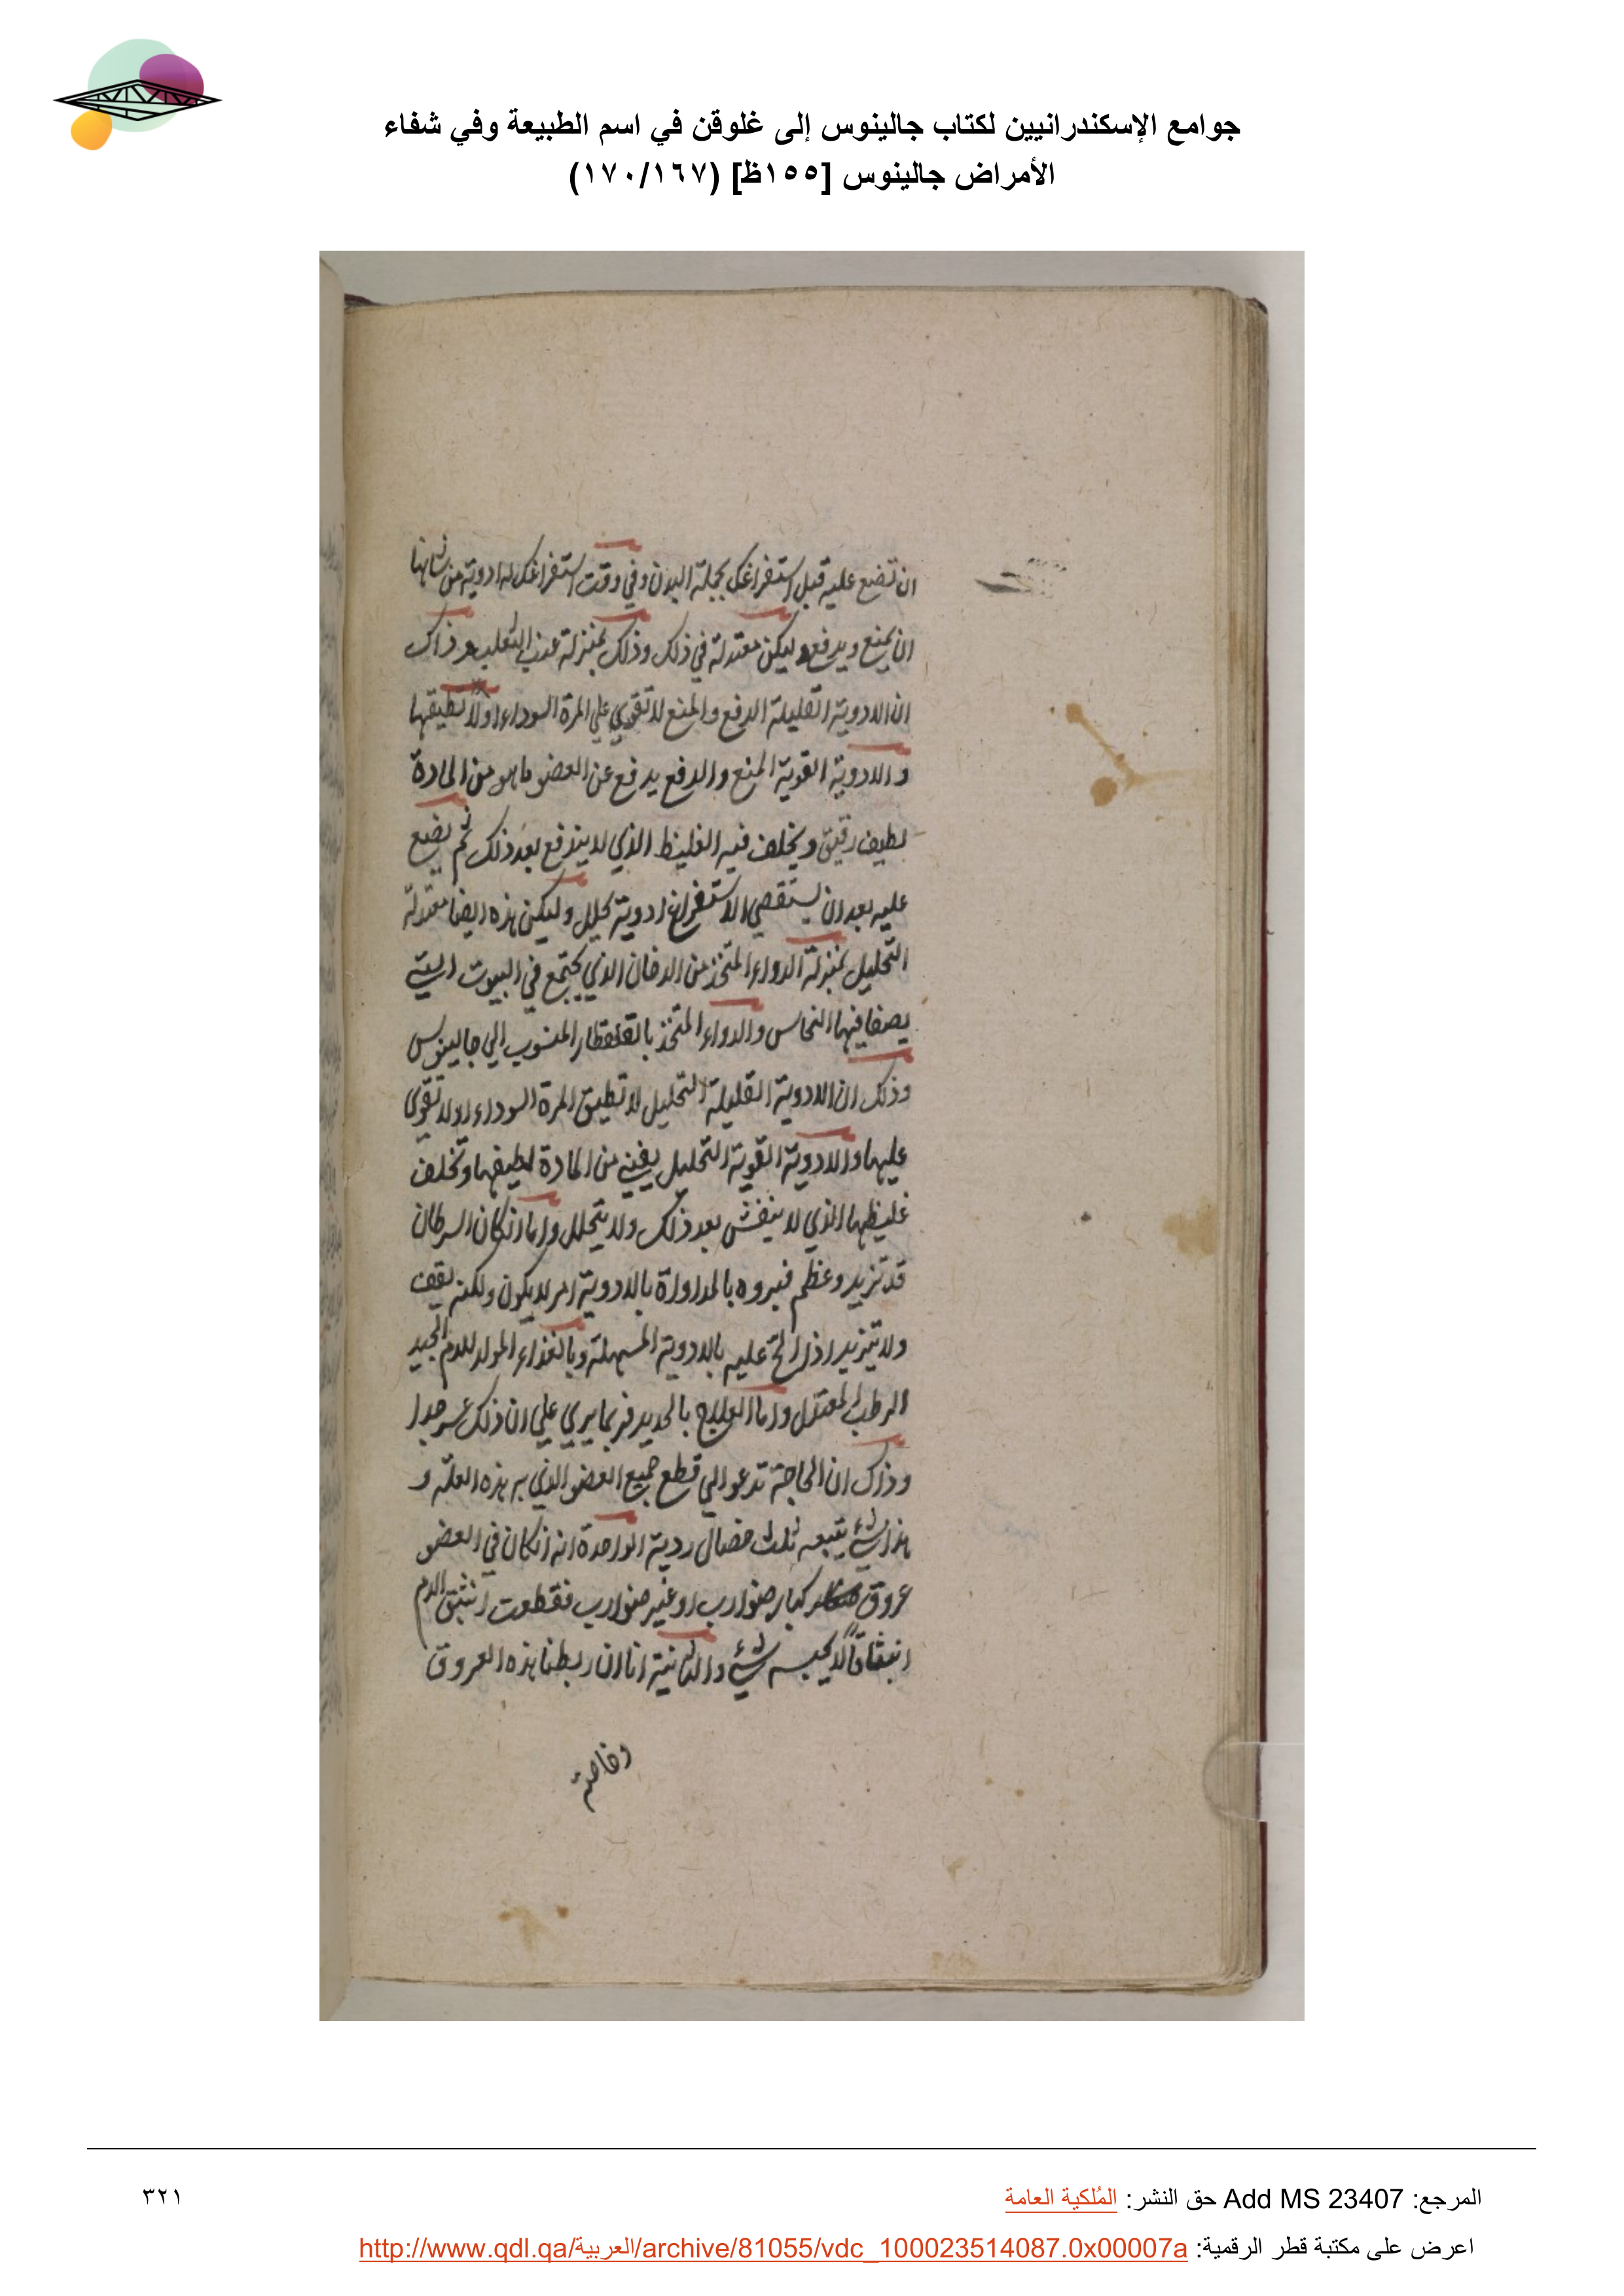 جوامع الإسكندرانيين لكتاب جالينوس إلى غلوقن في اسم الطبيعة وفي شفاء
الأمراض جالينوس [١٥٥ظ] (١٧٠/١٦٧)
ان تضع عليه قبل استفراغك بجملة البدن وفي وقت استفراغك له ادوية من شانها
ان يمنع ويدفع وليكن معتدلة في ذلك وذلك بمنزلة عنب الثعلب وذاك
ان الادوية القليلة الدفع والمنع لا تقوي علي المرة السوداء اولا تطيقها
والادوية القوية المنع والدفع يدفع عن العضو ما هو من المادة
لطيف رقيق ويخلف فيه الغليظ الذي لا يندفع بعد ذلك ثم يضع
عليه بعد ان يستقصي الاستفراغ ادوية تحلل وليكن هذه ايضا معتدلة
التحليل بمنزلة الدواء المتخذ من الدخان الذي يجتمع في البيوت التي
يصفا فيها النحاس والدواء المتخذ بالقلقطار المنسوب الي جالينوس
وذلك ان الادوية القليلة التحليل لا تطيق المرة السوداء اولا تقوي
عليها والادوية القوية التحليل يفني من المادة لطيفها وتخلف
غليظها الذي لا ينفش بعد ذلك ولا يتحلل واما ان كان السرطان
قد تزيد وعظم فبروه بالمداواة بالادوية امر لا يكون ولكنه يقف
ولا يتزيد اذا الح عليه بالادوية المسهلة وبالغذاء المولد للدم الجيد
الرطب المعتدل واما العلاج بالحديد فربما يري علي ان ذلك عسر جدا
وذاك ان الحاجة تدعو الي قطع جميع العضو الذي به هذه العلة و
هذا شيء يتبعه ثلث خصال ردية الواحدة انه ان كان في العضو
عروق كبار ضوارب او غير ضوارب فقطعت انبثق الدم
انبثاقا لا يحبسه شيء والثانية انا ان ربطنا هذه العروق
وخاصة
المرجع: Add MS 23407 حق النشر: المُلكية العامة
٣٢١
اعرض على مكتبة قطر الرقمية: http://www.qdl.qa/العربية/archive/81055/vdc_100023514087.0x00007a